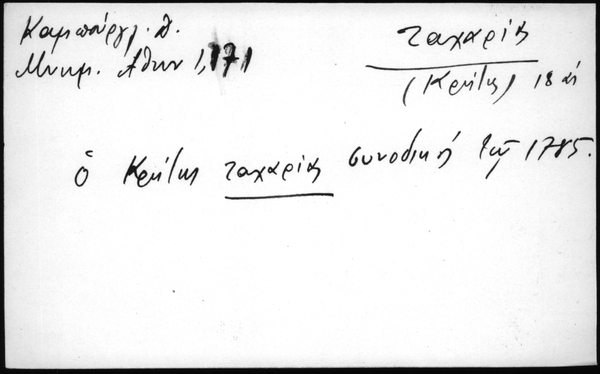 Καμπούργλ. Δ.
Μνημ. Αθην 1, 171
Ζαχαρίας
(Κρήτης) 18 αι
ὁ Κρήτης Ζαχαρίας συνοδική τῷ 1785.